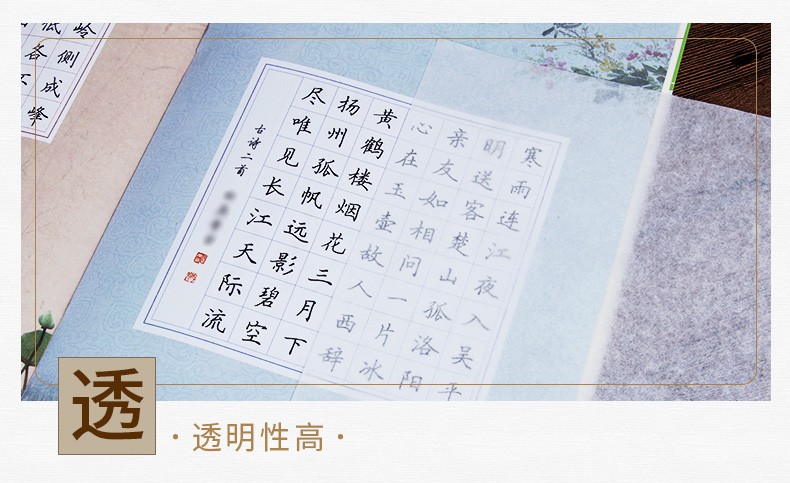 寒雨连江夜入吴平
明送客楚山孤洛阳
亲友如相问一片冰
心在玉壶故人西辞
黄鹤楼烟花三月下
扬州孤帆远影碧空
尽唯见长江天际流
古诗二首
岭侧成峰
低各不
透
·透明性高·